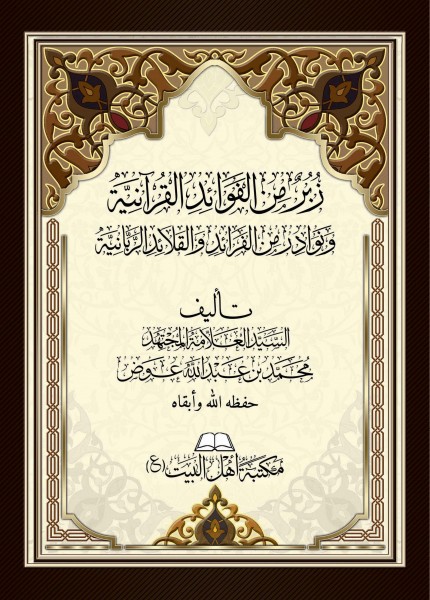 زُبُرٌ مِنَ الفَوَائِدِ القُرْآنِيَّةِ
وَنَوَادِرُ مِنَ الفَرَائِدِ وَالقَلَائِدِ الرَّبَّانِيَّةِ
تأليف
السَّيِّد العَلَّامَة المُجْتَهِد
مُحَمَّد بن عَبْدِ اللَّه عَوَض
حفظه الله وأبقاه
مَكْتَبَةُ أَهْلِ البَيْتِ (ع)